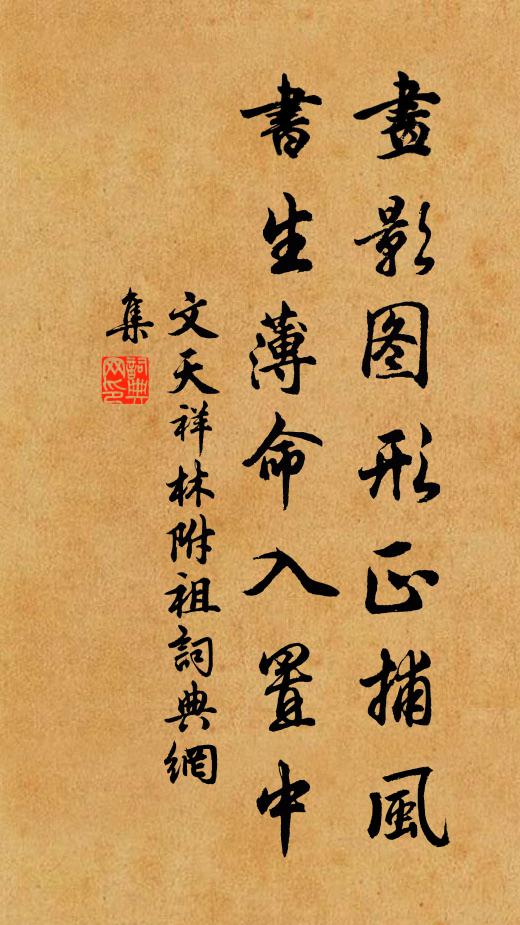 畫影图形正捕風
書生薄命入罝中
文天祥林附祖詞典網
集
詞典网印